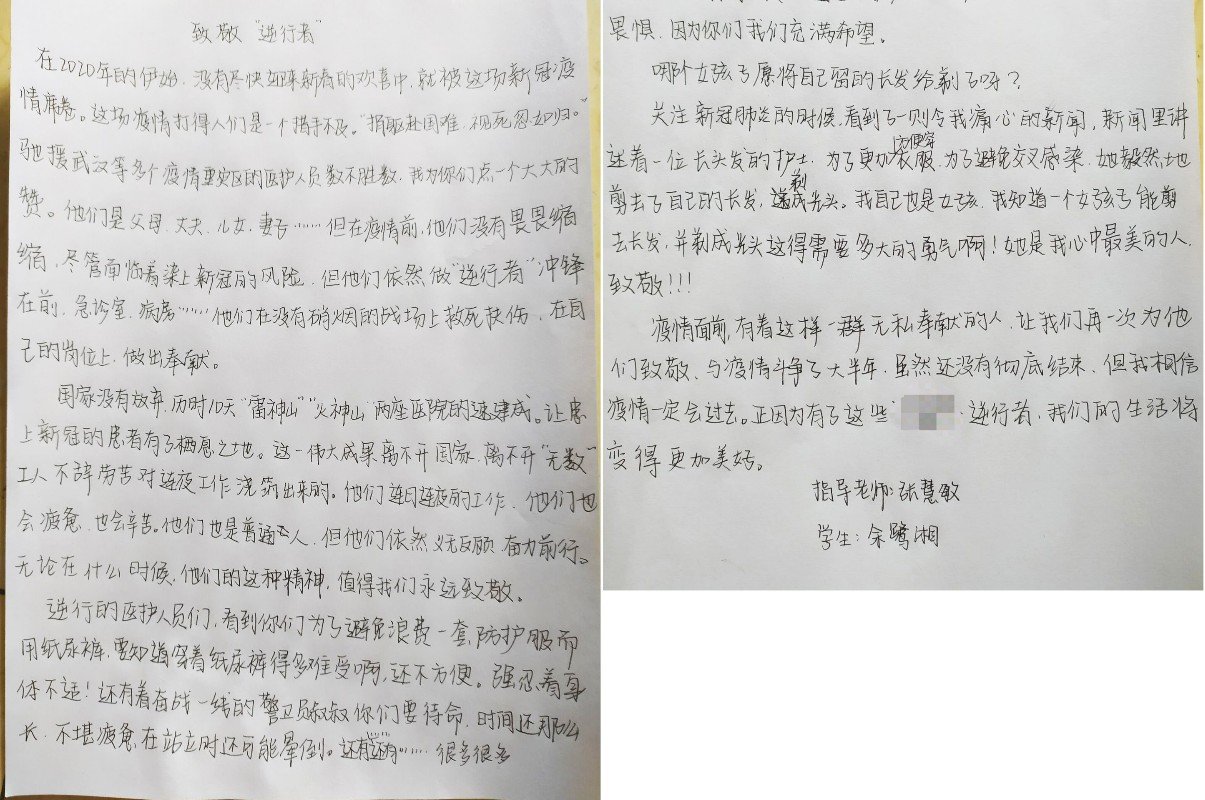 致敬“逆行者”
在2020年的伊始，没有尽快迎来新春的欢喜中，就被这场新冠疫
情席卷。这场疫情打得人们是一个措手不及。“捐躯赴国难，视死忽如归。”
驰援武汉等多个疫情重灾区的医护人员数不胜数，我为你们点一个大大的
赞。他们是父母、丈夫、儿女、妻子……但在疫情前，他们没有畏畏缩
缩，尽管面临着染上新冠的风险，但他们依然做“逆行者”冲锋
在前，急诊室、病房……他们在没有硝烟的战场上救死扶伤，在自
己的岗位上，做出奉献。
国家没有放弃，历时10天“雷神山”“火神山”两座医院的速建成。让患
上新冠的患者有了栖息之地。这一伟大成果离不开国家，离不开“无数”
工人不辞劳苦对连夜工作浇筑出来的。他们连日连夜的工作，他们也
会疲惫，也会辛苦。他们也是普通工人，但他们依然义无反顾，奋力前行。
无论在什么时候，他们的这种精神，值得我们永远致敬。
逆行的医护人员们，看到你们为了避免浪费一套防护服而
用纸尿裤，要知道穿着纸尿裤得多难受啊，还不方便。强忍着身
体不适！还有着奋战一线的警卫员叔叔你们要待命，时间还那么
长，不堪疲惫，在站立时还可能晕倒。还有还有……很多很多
畏惧，因为你们我们充满希望。
哪个女孩子愿将自己留的长发给剃了呀？
关注新冠肺炎的时候，看到了一则令我痛心的新闻，新闻里讲
述着一位长头发的护士，为了更加方便穿衣服，为了避免交叉感染，她毅然地
剪去了自己的长发，剃成光头。我自己也是女孩，我知道一个女孩子能剪
去长发，并剃成光头这得需要多大的勇气啊！她是我心中最美的人，
致敬！！！
疫情面前，有着这样一群无私奉献的人，让我们再一次为他
们致敬，与疫情斗争了大半年，虽然还没有彻底结束，但我相信
疫情一定会过去。正因为有了这些逆行者，我们的生活将
变得更加美好。
指导老师：张慧敏
学生：余鹭湘